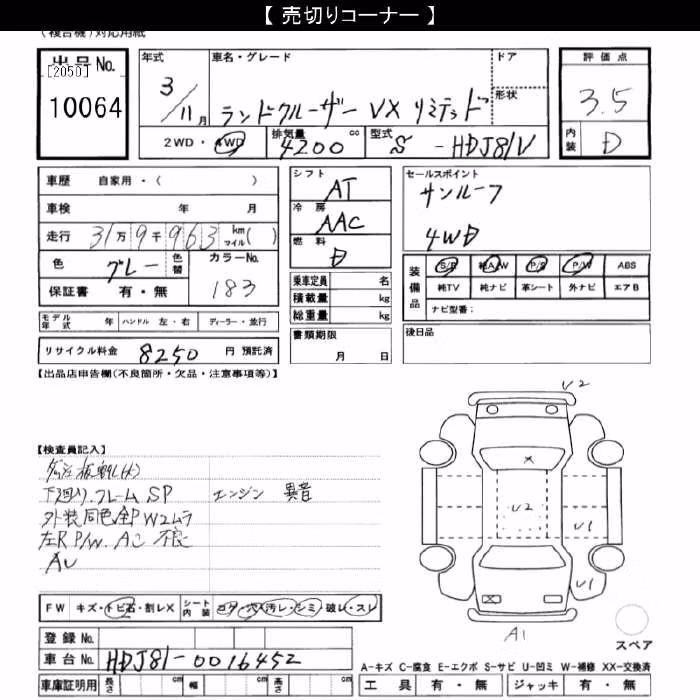 【 売切りコーナー 】
(複合機)対応用紙
出品No.
[2050]
10064
年式 3/11月
車名・グレード
ランドクルーザー VX リミテッド
ドア
形状
2WD・4WD
排気量 4200 cc
型式 S - HDJ81V
評価点
3.5
内装 D
車歴 自家用・( )
車検 年 月
走行 31万9千963 km マイル( )
色 グレー 色替
カラーNo. 183
保証書 有・無
モデル年式 年 ハンドル 左・右 ディーラー・並行
リサイクル料金 8250 円 預託済
シフト AT
冷房 AAC
燃料 D
乗車定員 名
積載量 kg
総重量 kg
書類期限
月 日
セールスポイント
サンルーフ
4WD
装備品
S/R 純A/W P/S P/W ABS
純TV 純ナビ 革シート 外ナビ エアB
ナビ型番:
後日品
【出品店申告欄(不良箇所・欠品・注意事項等)】
【検査員記入】
下廻り.フレーム SP
エンジン 異音
外装同色全P W2ムラ
左R P/W. AC 不良
AU
FW キズ・トビ石・割レX
シート内装 コゲ・穴・汚レ・シミ・破レ・スレ
登録 No.
車台 No. HDJ81-0016452
車庫証明用 長さ cm 幅 cm 高さ cm
U2
X
U2
U1
U1
X
A1
スペア
A-キズ C-腐食 E-エクボ S-サビ U-凹ミ W-補修 XX-交換済
工具 有・無 ジャッキ 有・無